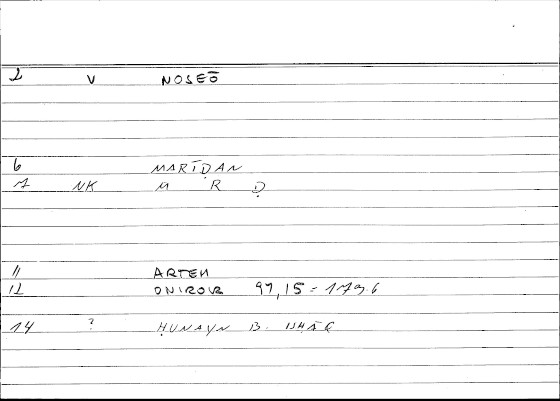 2 V NOSEŌ
6 MARĪḌAN
7 NK M R Ḍ
11 ARTEM
12 ONIROKR 97,15 = 179.6
14 ? ḤUNAYN B. ISḤĀQ